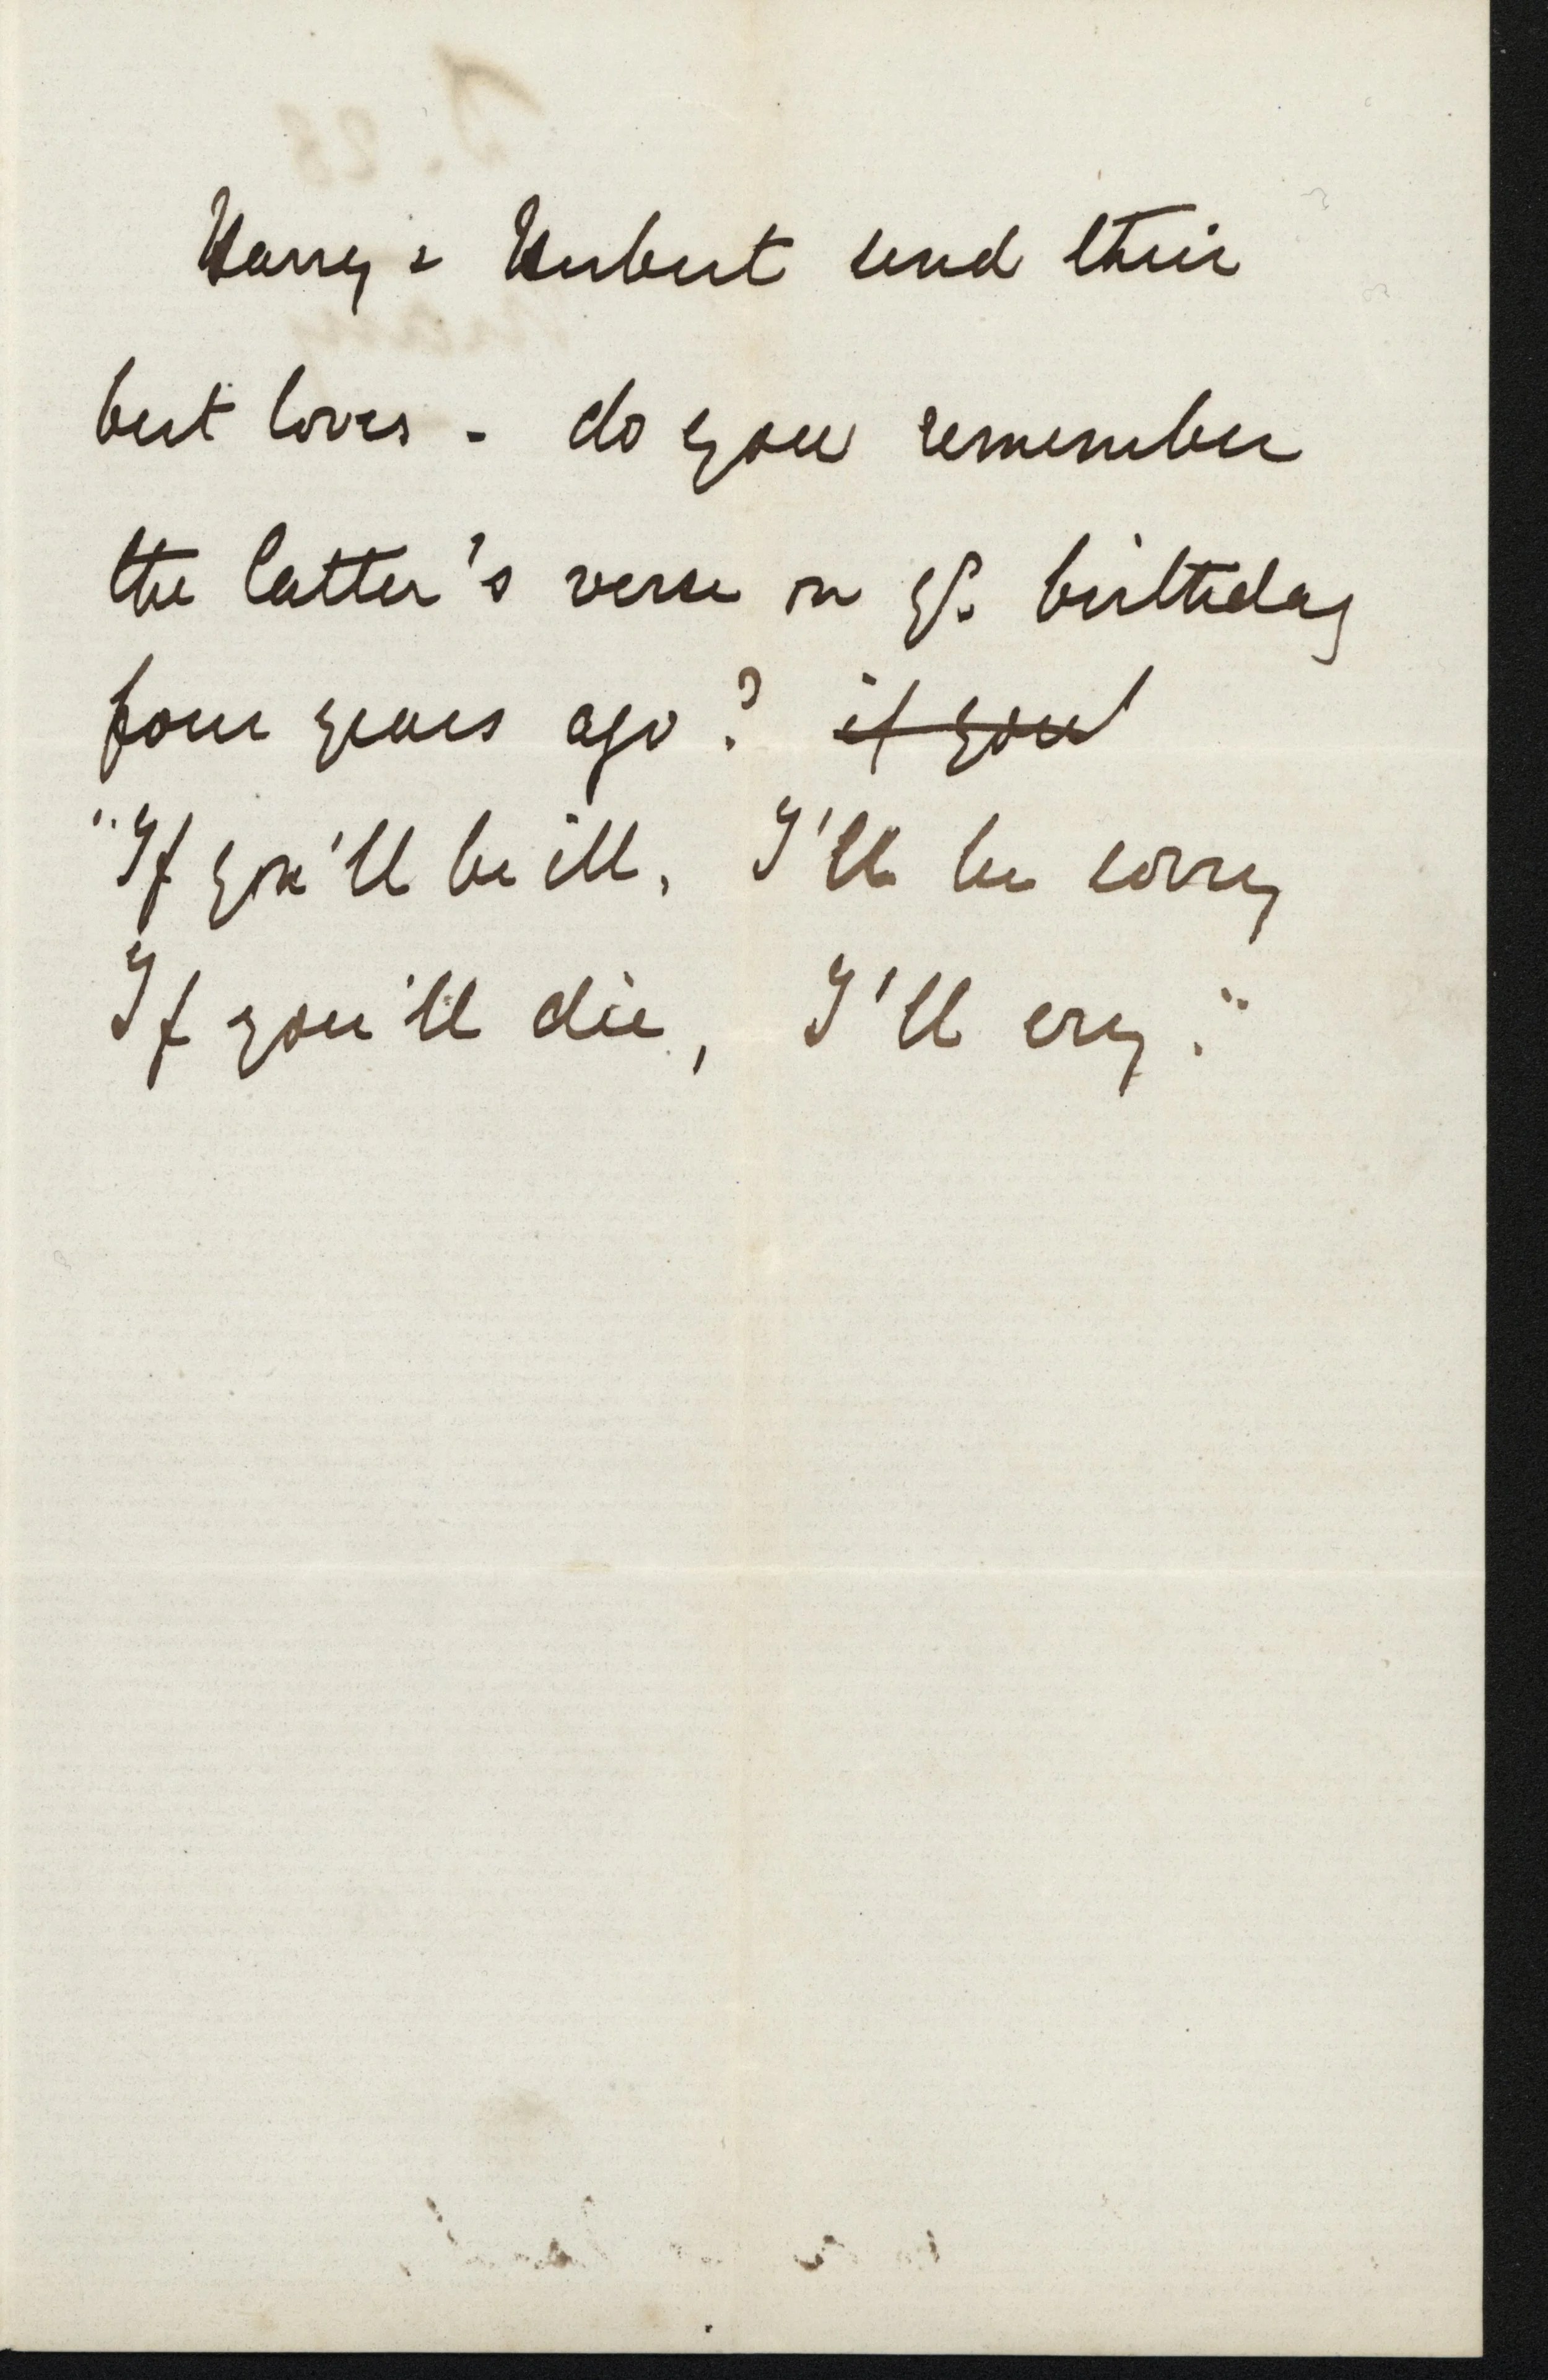 Harry & Herbert send their
best loves - do you remember
the latter's verse on yr. birthday
four years ago? if you
"If you'll be ill, I'll be sorry
If you'll die, I'll cry."